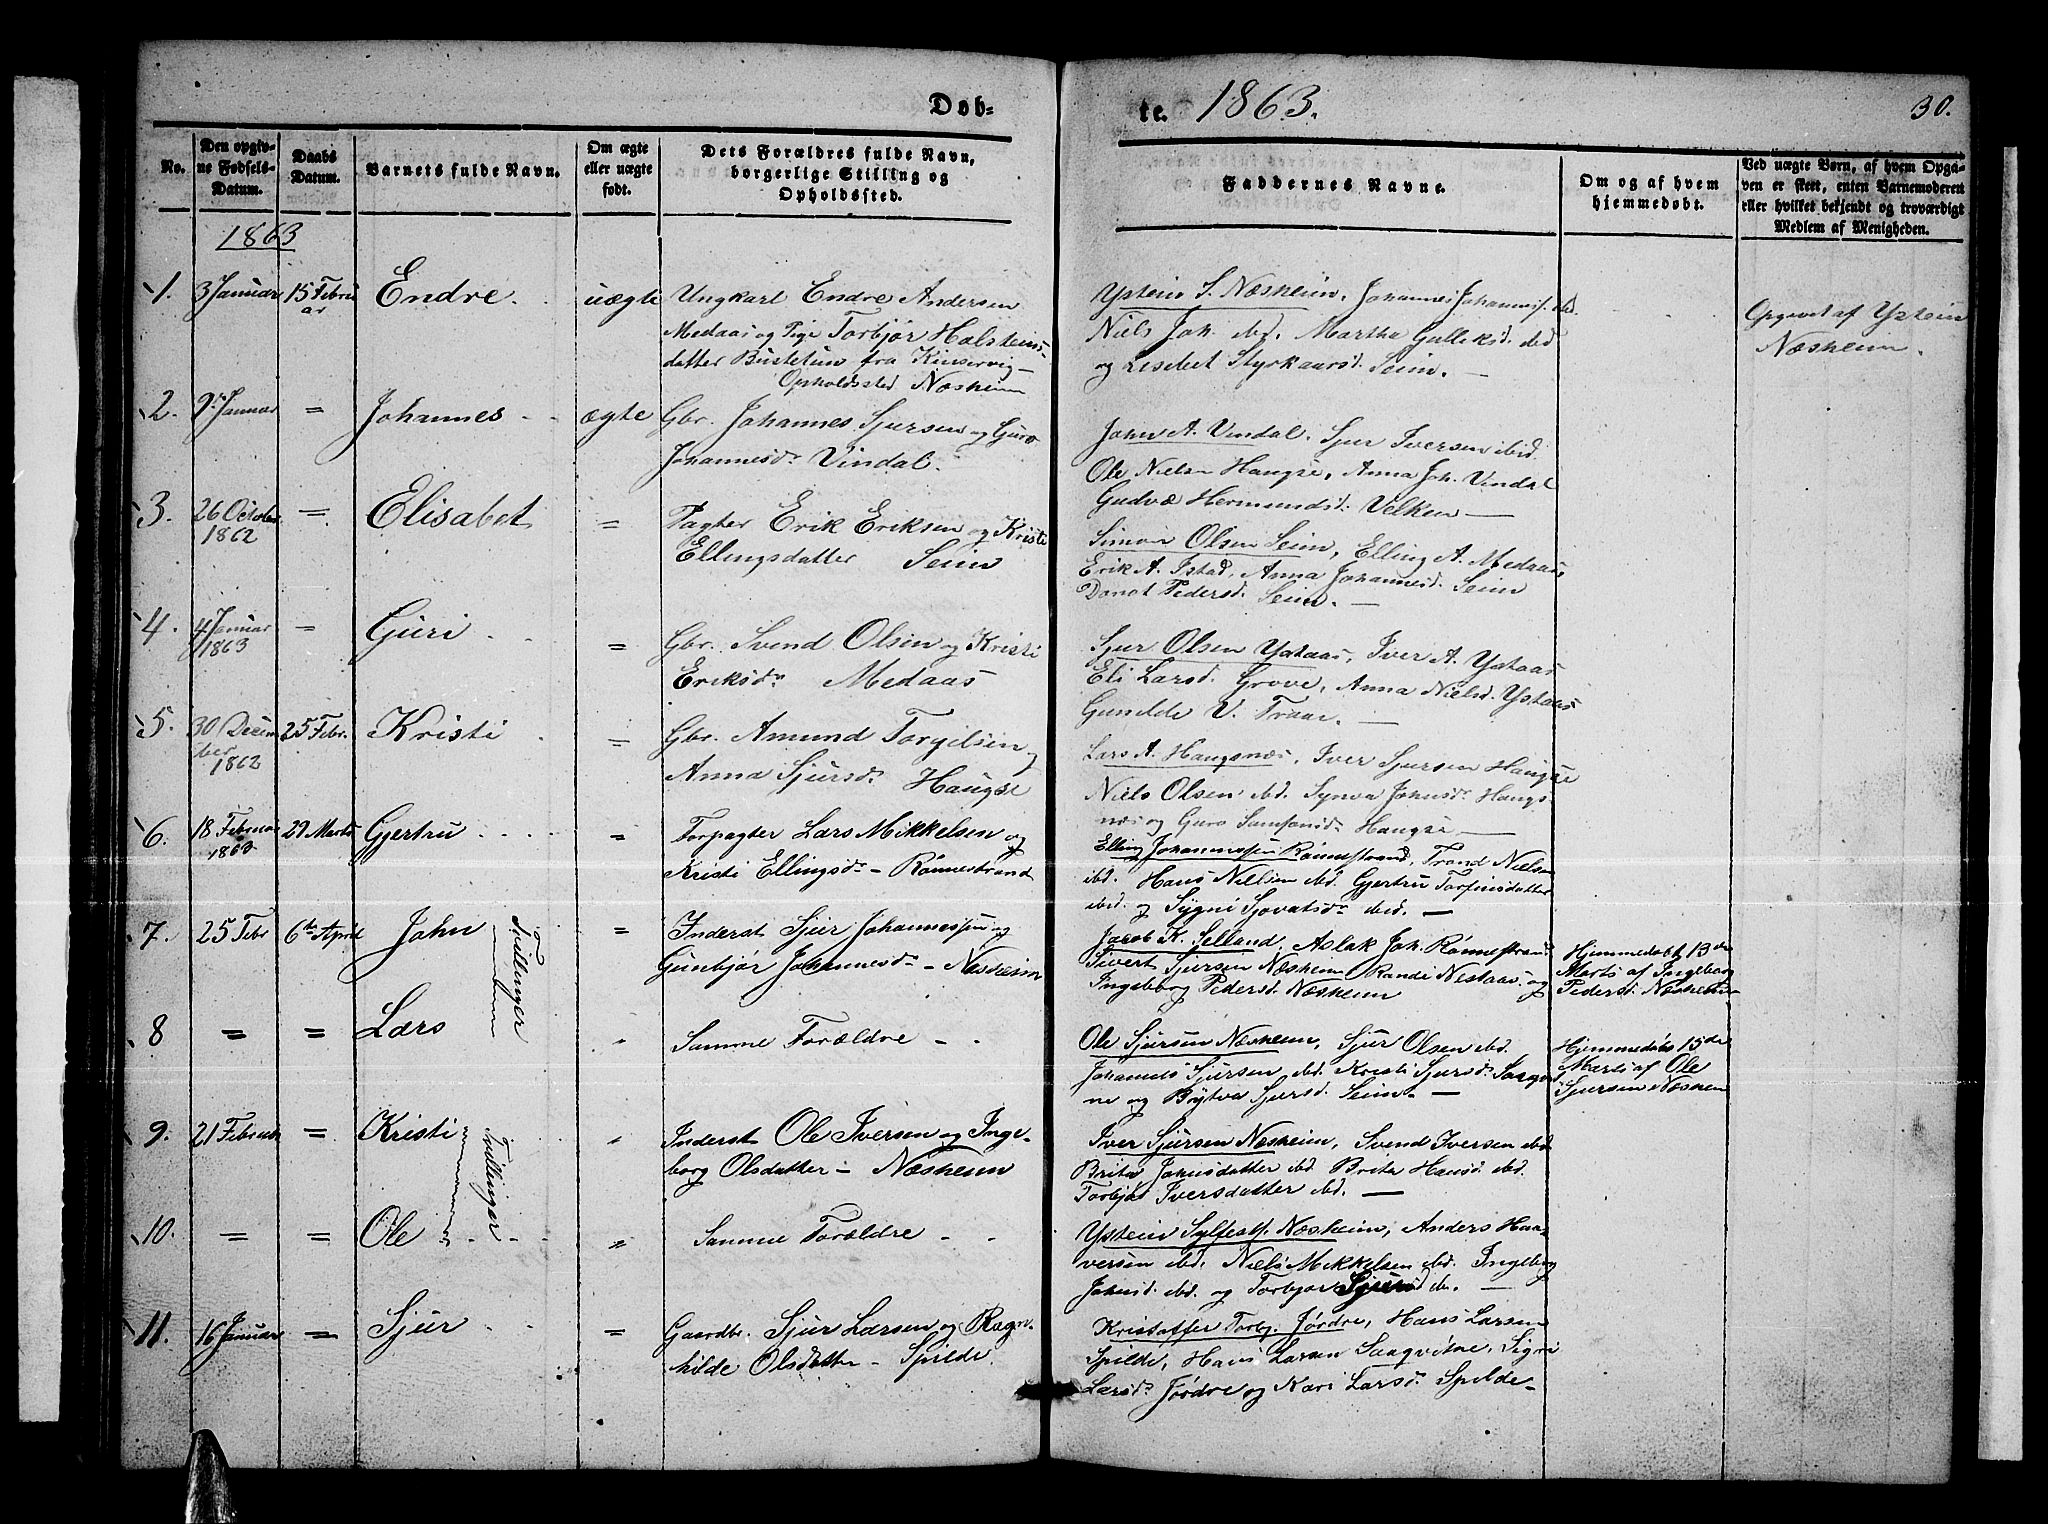 Døb-
te. 1863.
30.
No.
Den opgiv-
ne Fødsels-
Datum.
Daabs
Datum.
Barnets fulde Navn.
Om ægte
eller uægte
født.
Dets Forældres fulde Navn,
borgerlige Stilling og
Opholdssted.
Faddernes Navne.
Om og af hvem
hjemmedøbt.
Ved uægte Børn, af hvem Opga-
ven er skeet, enten Barnemoderen
eller hvilket bekjendt og troværdigt
Medlem af Menigheden.
1863
1. 3 Januar 15 Febru
ar
Endre uægte
Ungkarl Endre Andersen
Medaas og Pige Torbjør Halsteins-
datter Bustetun fra Kinservig -
Opholdssted Næsheim
Ystein S. Næsheim, Johannes Johanness. ibd.
Niels Joh. ibd. Martha Gulleksd. ibd
og Lisebet Styrkaarsd. Seim. -
Opgivet af Ystein
Næsheim.
2. 9 Januar = Johannes ægte
Gbr. Johannes Sjursen og Guro
Johannesdr Vindal.
John A. Vindal. Sjur Iversen ibid.
Ole Nielsen Haugse, Anna Joh. Vindal
Gudvæ Hermundsd. Velken -
3. 26 October
1862
= Elisabet =
Pagter Erik Eriksen og Kristi
Ellingsdatter Seim
Simon Olsen Seim, Elling A. Medaas,
Erik A. Istad, Anna Johannesd. Seim
Danot Pedersd. Seim. -
4. 4 Januar
1863
= Guri =
Gbr. Svend Olsen og Kristi
Eriksdr Medaas
Sjur Olsen Ystaas, Iver A. Ystaas
Eli Larsd. Grove, Anna Nielsd. Ystaas
Gunilde V. Traae. -
5. 30 Decem
ber
1862
25 Febr. Kristi =
Gbr. Amund Torgilsen og
Anna Sjursdr Haugse
Lars A. Haugsnæs, Iver Sjursen Haugse
Niels Olsen ibd. Synva Johnsdr Haugs-
næs og Guro Samsonsdr Haugse -
6. 18 Februar
1863
29 Marts Gjertru =
Forpagter Lars Mikkelsen og
Kristi Ellingsdr - Rønnestrand
Elling Johannessen Rønnestrand, Trond Nielsen
ibd. Hans Nielsen ibd. Gjertru Torfinsdatter
ibd. og Sygni Sjovatsdr ibd. -
7. 25 Febr 6te April John Tvillinger =
Inderst Sjur Johannessen og
Gunbjør Johannesdr - Nesheim
Jacob K. Selland, Aslak Joh. Rønnestrand
Sivert Sjursen Næsheim Randi Nestaas og
Ingeborg Pedersd. Næsheim
Hjemmedøbt 13de
Marts af Ingeborg
Pedersd. Næsheim
8 = = Lars "
Samme Forældre
Ole Sjursen Næsheim, Sjur Olsen ibd.
Johannes Sjursen ibd. Kristi Sjursd.
ne og Bøtva Sjursd. Seim. -
Hjemmedøbt 15de
Marts af Ole
Sjursen Næsheim
9. 21 Februar = Kristi Tvillinger "
Inderst Ole Iversen og Inge-
borg Olsdatter - Næsheim
Iver Sjursen Næsheim, Svend Iversen ibd
Brita Johnsdatter ibd. Brita Hansd. ibd.
Torbjør Iversdatter ibd. -
10. = = Ole "
Samme Forældre
Ystein Sylfestf. Næsheim, Anders Haa-
versen ibd. Niels Mikkelsen ibd. Ingeborg
Johnsd. ibd. og Torbjør Sjursd ibd. -
11. 16 Januar = Sjur =
Gaardbr. Sjur Larsen og Ragn-
hilde Olsdatter - Spilde.
Kristaffer Torb. Jørdre, Hans Larsen
Spilde, Hans Larsen Saaqvitne, Sigri
Larsdr Jørdre og Kari Larsdr Spilde-